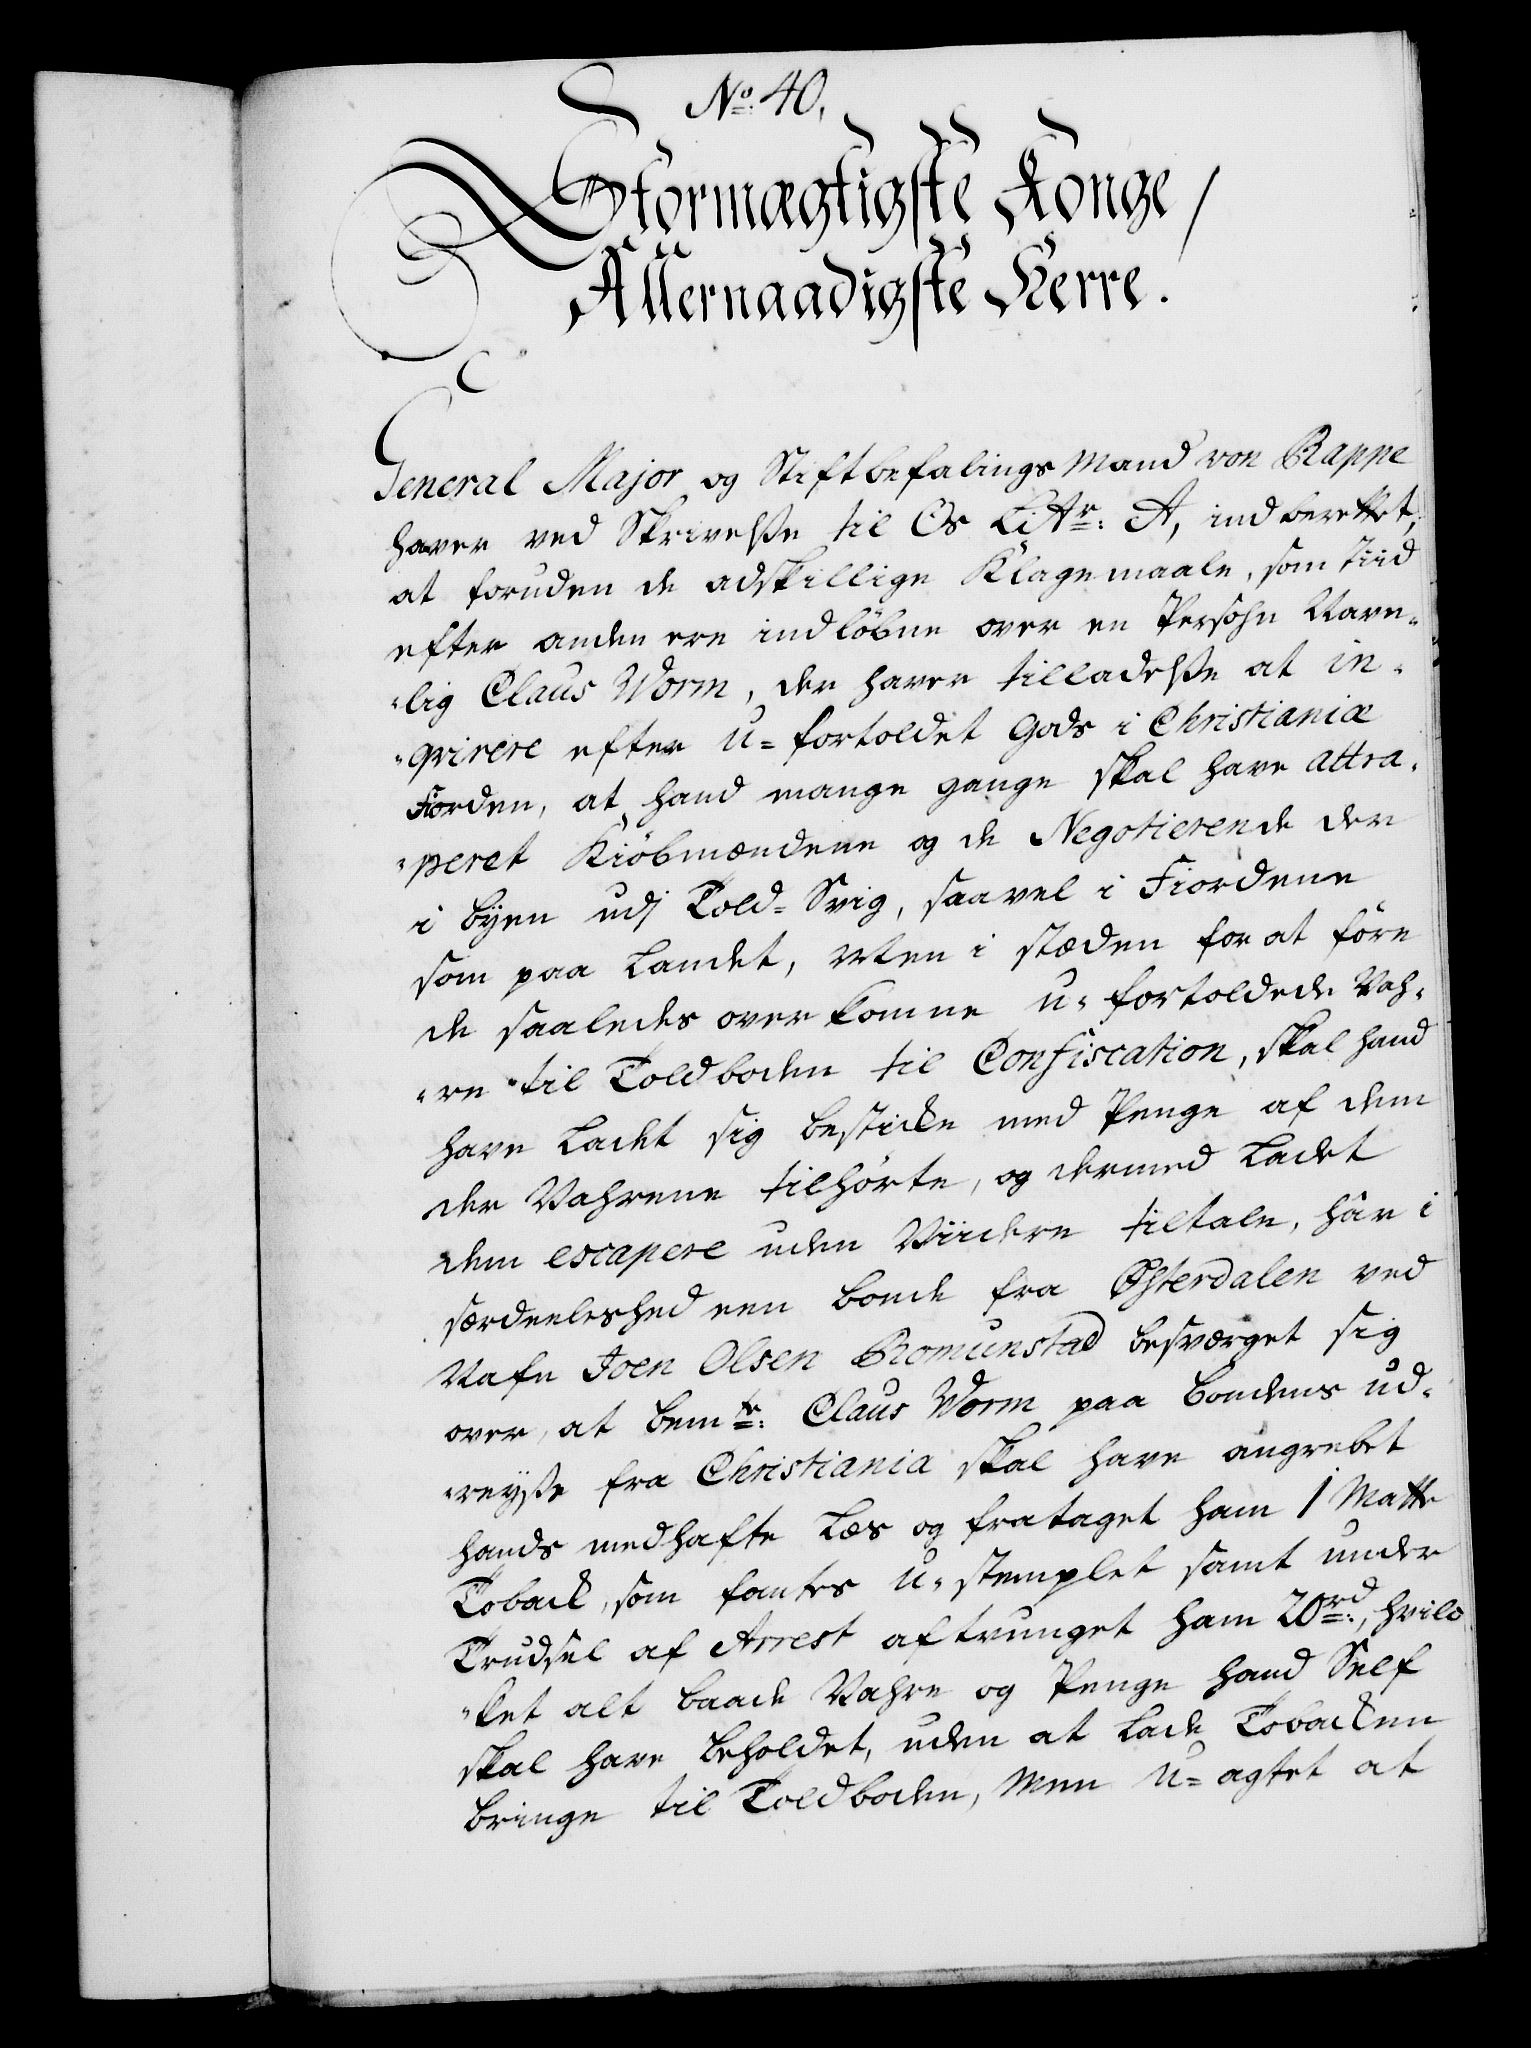 No. 40,
Stormægtigste Konge/
Allernaadigste Herre.
General Major og Stiftbefalings Mand von Rappe
haver ved Skrivelße til Os Littr: A, indberettet,
at foruden de adskillige Klagemaale, som Tiid
efter anden ere indløbne over en Persohn Navn-
"lig Claus Worm, der haver tilladelße at in-
"qvirere efter U=fortoldet Gods i Christianiæ
Fiorden, at hand mange gange skal have attra-
"peret Kiöbmændene og de Negotierende der
i byen udj Told=Svig, saavel i Fiordene
som paa Landet, Men i stæden for at före
de saaledes overkomne U=fortoldede Vah-
"re til Toldboden til Confiscation, skal hand
have Ladet sig besticke med Penge af dem
der Vahrene tilhörte, og dermed Ladet
dem escapere uden Viidere tiltale, hår i
særdeeleshed een bonde fra Østerdalen ved
Nafn Joen Olsen Romunstad besværget sig
over, at bemte: Claus Worm paa bondens ud-
"reyße fra Christiania skal have angrebet
hands medhafte Læs og frataget ham 1 Matte
Toback, som fantes U=stemplet samt under
Trudsel af Arrest aftvunget ham 20rd:, hvil-
"ket alt baade Vahre og Penge hand Self
skal have beholdet, uden at Lade Tobacken
bringe til Toldboden, Men U=agtet at